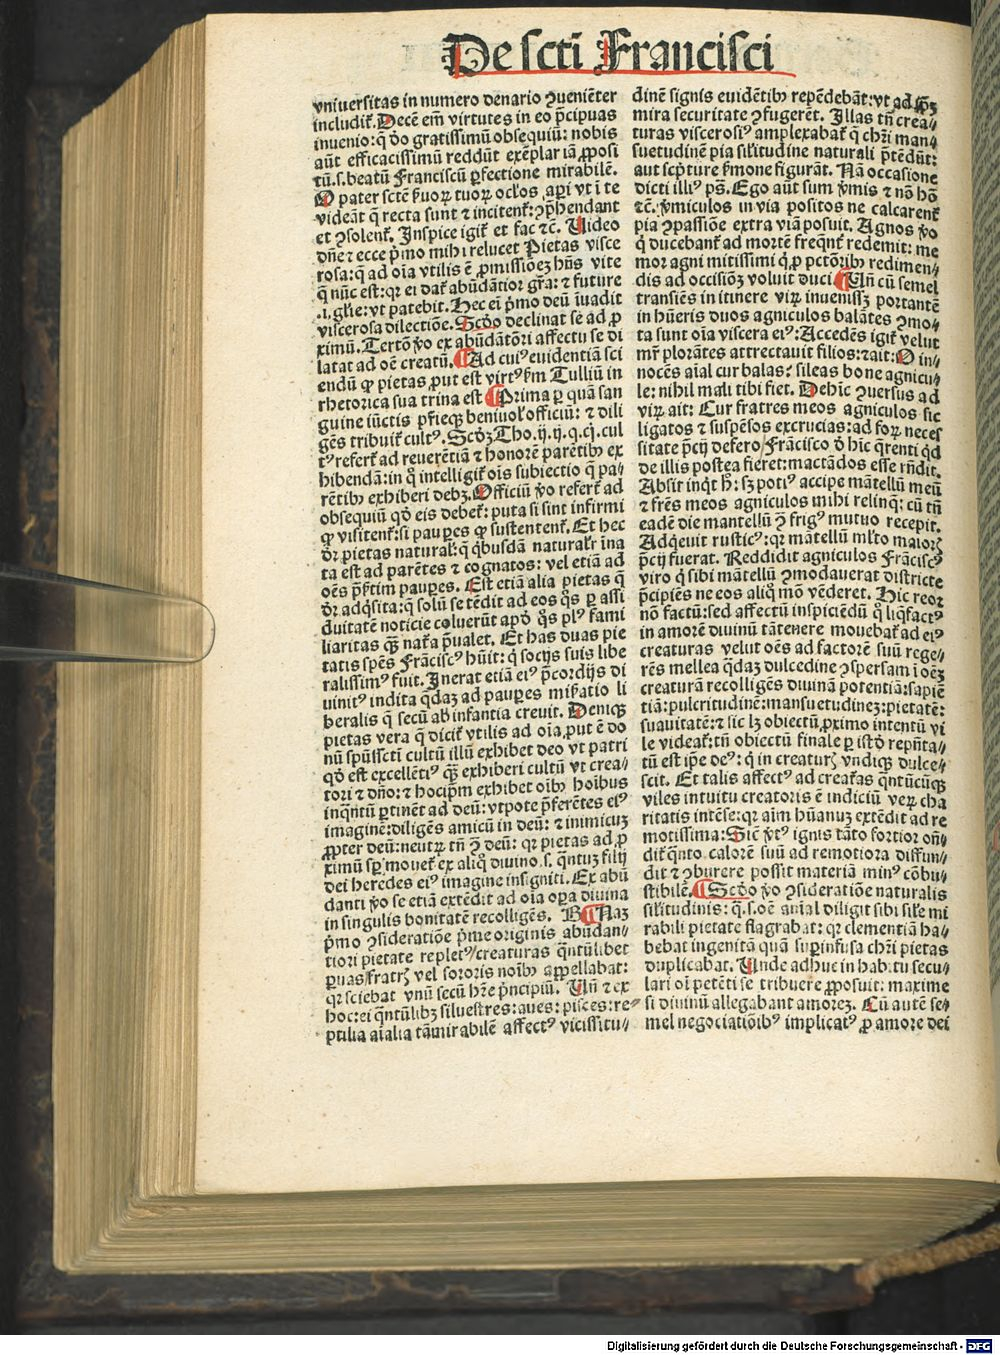 De scti Francisci
vniuersitas in numero denario ꝯueniēter
includit᷑. Decē em̄ virtutes in eo p̄cipuas
inuenio: q̄ ꝺo gratissimū obsequiū: nobis
aūt efficacissimū reddūt exēplar iā ꝓposi
tū .s. beatū Franciscū ꝑfectione mirabilē.
O pater sctē tuoꝝ ocłos apī vt ī te
videāt q̄ recta sunt ⁊ incitent᷑: ꝯp̄hendant
et ꝯsolent᷑. Inspice igit᷑ et fac ⁊c̄. Uideo
dn̄e ⁊ ecce p̄mo mihi relucet Pietas visce
rosa: q̄ ad oīa vtilis ē ꝓmissiōeꝫ hn̄s vite
q̄ nūc est: qꝛ ei dat᷑ abūdātior gr̄a: ⁊ future
.i. glīe: vt patebit. Hec eī p̄mo deū inuadit
viscerosa dilectiōe. Scd̄o declinat se ad ꝓ
ximū. Tertō ṽo ex abūdātōri affectu se di
latat ad oē creatū. ¶ Ad cuiꝰ euidentiā sci
endū ꝙ pietas ꝓut est virtꝰ ẜm Tulliū in
rhetorica sua trina est ¶ Prima ꝑ quā san
guine iūctis benīuol᷑ officiū: ⁊ dili
gēs tribuit᷑ cultꝰ. Scd̄ꝫ Tho. ij. ij. q. cj. cul
tꝰ refert᷑ ad reuerētiā ⁊ honorē parētibꝫ ex
hibendā: in q̊ intelligit᷑ oīs subiectio q̄ pa/
rētibꝫ exhiberi debꝫ. Officiū ṽo refert᷑ ad
obsequiū qd̄ eis debet᷑: puta si sint infirmi
ꝙ visitent᷑: si pauꝑes ꝙ sustentent᷑. Et hec
dr̄ pietas natural᷑: q̄ q̇busdā naturalr̄ īna
ta est ad parētes ⁊ cognatos: vel etiā ad
oēs pauꝑes. Est etiā alia pietas q̄
dr̄ adq̇sita: q̄ solū se tēdit ad eos q̊s ꝑ assi
duitatē noticie coluerūt apd̄ q̊s plꝰ fami
liaritas q̄ꝫ nat᷑a p̄ualet. Et has duas pie
tatis spēs Frāciscꝰ hūit: q̇ socijs suis libe
ralissimꝰ fuit. Inerat etiā eiꝰ p̄cordijs di
uinitꝰ indita q̄daꝫ ad pauꝑes miẜatio li
beralis q̄ secū ab infantia creuit. Deniqꝫ
pietas vera q̄ dicit᷑ vtilis ad oīa ꝓut ē do
nū spūsscti cultū illū exhibet deo vt patri
qd̄ est excellētiꝰ q̄ꝫ exhiberi cultū vt crea/
tori ⁊ dn̄o: ⁊ hocip̄m exhibet oībꝫ hoībus
inq̄ntū ꝑtinēt ad deū: vtpote p̄ferētes eiꝰ
imaginē: diligēs amicū in deū: ⁊ inimicuꝫ
ꝓpter deū: neutꝝ tn̄ ꝯ̄ deū: qꝛ pietas ad ꝓ
ximū sꝑ mouet᷑ ex aliq̊ diuino .s. q̄ntuꝫ filij
dei heredes eiꝰ imagine insigniti. Ex abū
danti ṽo se etiā extēdit ad oīa oꝑa diuina
in singulis bonitatē recolligēs. B¶Naꝫ
p̄mo ꝯsideratiōe p̄me originis abūdan/
tiori pietate repletꝰ/creaturas q̄ntūlibet
ꝑuas/fratrꝫ vel sororis noībꝫ appellabat:
qꝛ sciebat vnū secū hr̄e p̄ncipiū. Un̄ ⁊ ex
hoc: ei q̄ntūlibꝫ siluestres: aues: pisces: re/
ptilia aīalia tā mirabilē affectꝰ vicissitu/
dinē signis euidētibꝫ repēdebāt: vt ad ip̄ꝫ
mira securitate ꝯfugerēt. Illas tn̄ crea/
turas viscerosiꝰ amplexabat᷑ q̄ chr̄i man/
suetudinē pia sil᷑itudine naturali p̄tēdūt:
aut sc̄pture ẜmone figurāt. Nā occasione
dicti illiꝰ ps̄. Ego aūt sum ṽmis ⁊ nō hō
⁊c̄. ṽmiculos in via positos ne calcarent᷑
pia ꝯpassiōe extra viā posuit. Agnos ṽo
q̇ ducebant᷑ ad mortē freq̄nt᷑ redemit: me
mor agni mitissimi q̇ ꝓ pctōribꝫ redimen/
dis ad occisiōꝫ voluit duci ¶Un̄ cū semel
transiēs in itinere viꝝ inuenissꝫ portantē
in hūeris duos agniculos balātes ꝯmo/
ta sunt oīa viscera eiꝰ: Accedēs igit᷑ velut
mr̄ plorātes attrectauit filios: ⁊ait: O in/
nocēs aīal cur balas: sileas bone agnicu/
le: nihil mali tibi fiet. Dehīc ꝯuersus ad
viꝝ ait: Cur fratres meos agniculos sic
ligatos ⁊ suspēsos excrucias: ad foꝝ neces
sitate p̄cij defero/Frācisco ꝺ̄ hīc q̄renti qd̄
de illis postea fieret: mactādos esse rn̄dit.
Absit inqt ħ: sꝫ potiꝰ accipe mātellū meū
⁊ fr̄es meos agniculos mihi relinq̄: cū tn̄
eadē die mantellū ꝯ̄ frigꝰ mutuo recepit.
Adqeuit rusticꝰ: qꝛ mātellū ml̄to maiorꝫ
p̄cij fuerat. Reddidit agniculos Frāciscꝰ
viro q̇ sibi mātellū ꝯmodauerat districte
p̄cipiēs ne eos aliq̊ mō vēderet. Hic reoꝛ
nō factū: sed affectū inspiciēdū q̊ liq̄factꝰ
in amorē diuinū tā tenere mouebat᷑ ad eiꝰ
creaturas velut oēs ad factorē suū rege/
rēs mellea q̄daꝫ dulcedine ꝯspersam ī oēꝫ
creaturā recolligēs diuinā potentiā: sapiē
tiā: pulcritudinē: mansuetudineꝫ: pietatē:
suauitatē: ⁊ sic lꝫ obiectū ꝓximo intentū vi
le videat᷑: tn̄ obiectū finale ꝑ istd̄ repn̄ta/
tū est ip̄e deꝰ: q̇ in creaturꝫ vndiqꝫ dulce/
scit. Et talis affectꝰ ad creat᷑as q̄ntūcūqꝫ
viles intuitu creatoris ē indiciū veꝝ cha
ritatis intēse: qꝛ aīm hūanuꝫ extēdit ad re
motissima: Sic ignis tāto fortior on̄/
dit᷑ q̄nto calorē suū ad remotiora diffun/
dit ⁊ ꝯburere possit materiā minꝰ cōbu/
stibilē. ¶ Scd̄o ṽo ꝯsideratiōe naturalis
sil᷑itudinis: q̄.s. oē aīal diligit sibi sil᷑e mi
rabili pietate flagrabat: qꝛ clementiā ha/
bebat ingenitā quā suꝑinfusa chr̄i pietas
duplicabat. Unde adhuc in habitu secu/
lari oī petēti se tribuere ꝓposuit: maxime
si diuinū allegabant amoreꝫ. Cū autē se/
mel negociatiōibꝰ implicatꝰ ꝓ amore dei
Digitalisierung gefördert durch die Deutsche Forschungsgemeinschaft - DFG